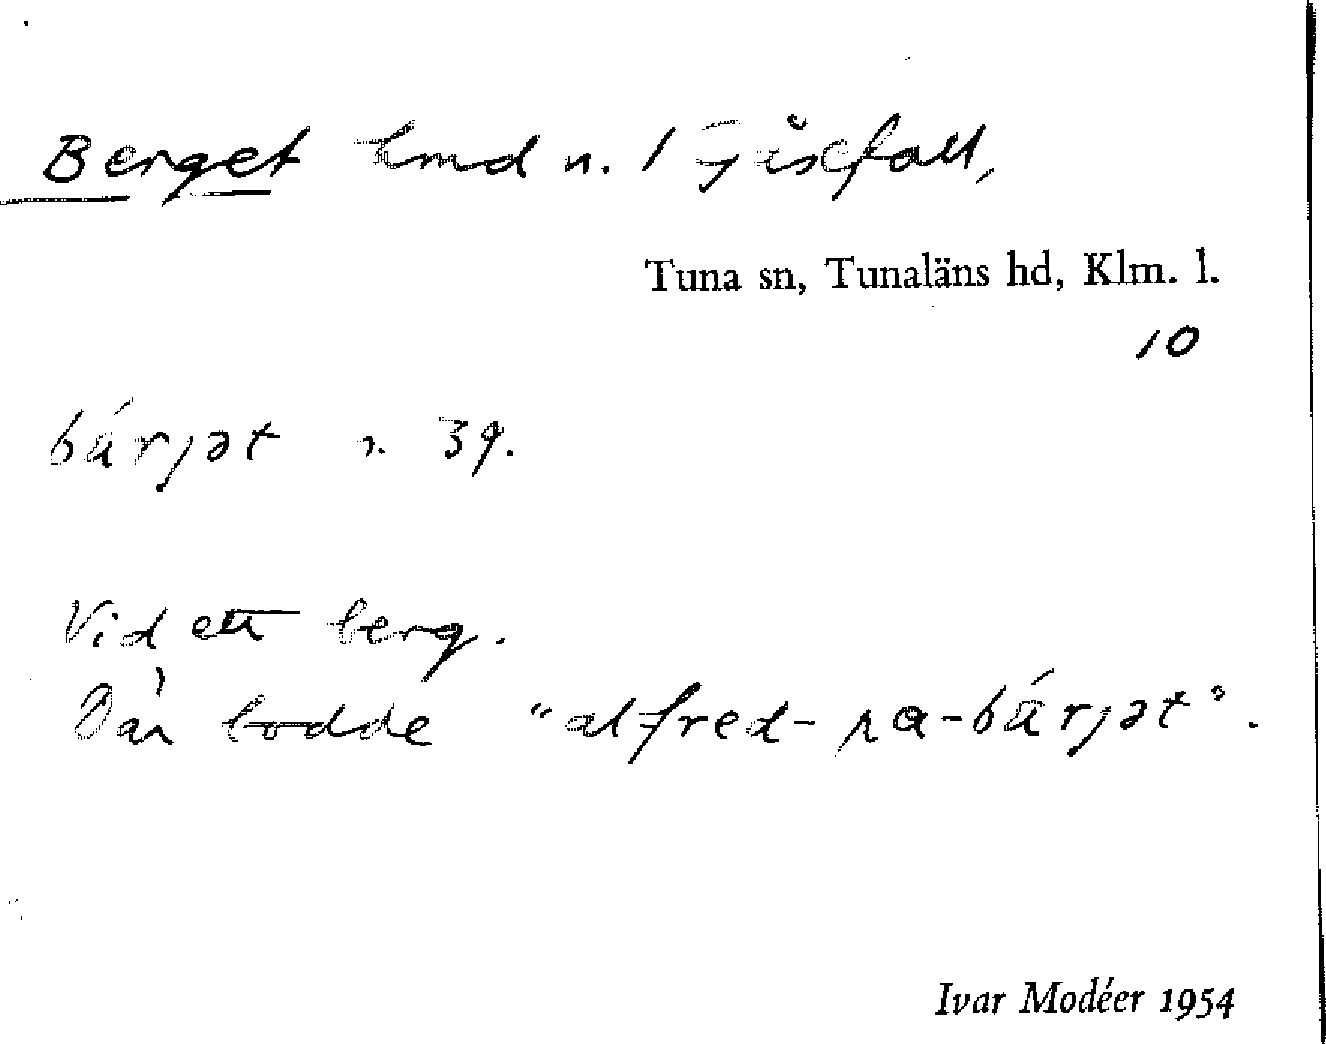 Berget lmd n. 1 Gåsefall,
Tuna sn, Tunaläns hd, Klm. l.
10
bárjət n. 39.
Vid ett berg.
Där bodde "alfred-pa-bárjət".
Ivar Modéer 1954